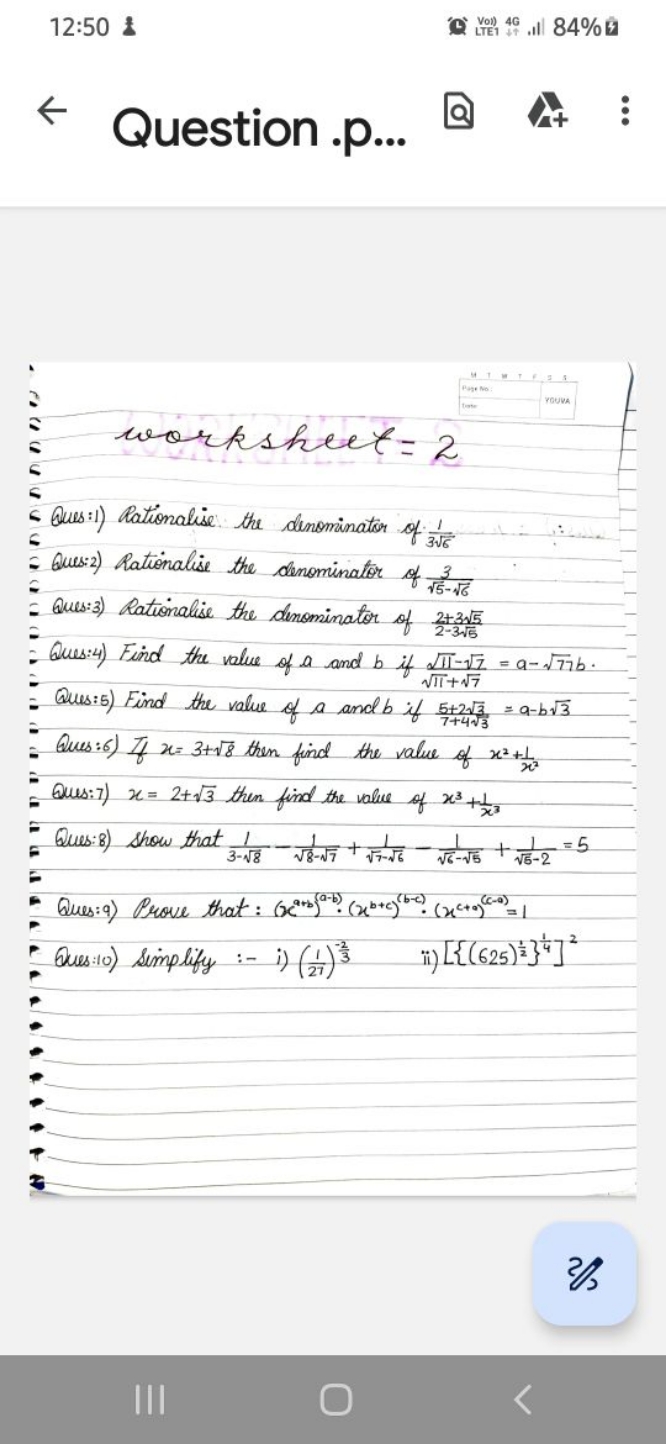 12:50
Vo)) 4G
LTE1 84%
Question .p...
M T W T F S S
Page No.:
Date:
YOUVA
worksheet = 2
Ques:1) Rationalise the denominator of 1/3√6
Ques:2) Rationalise the denominator of 3/√5-√6
Ques:3) Rationalise the denominator of 2+3√5/2-3√5
Ques:4) Find the value of a and b if √11-√7/√11+√7 = a-√77b.
Ques:5) Find the value of a and b if 5+2√3/7+4√3 = a-b√3
Ques:6) If x= 3+√8 then find the value of x²+1/x²
Ques:7) x = 2+√3 then find the value of x³+1/x³
Ques:8) Show that 1/3-√8 - 1/√8-√7 + 1/√7-√6 - 1/√6-√5 + 1/√5-2 = 5
Ques:9) Prove that : (x^a+b)^(a-b) . (x^b+c)^(b-c) . (x^c+a)^(c-a) = 1
Ques:10) Simplify :- i) (1/27)^-2/3 ii) [{(625)^½}^¼]²